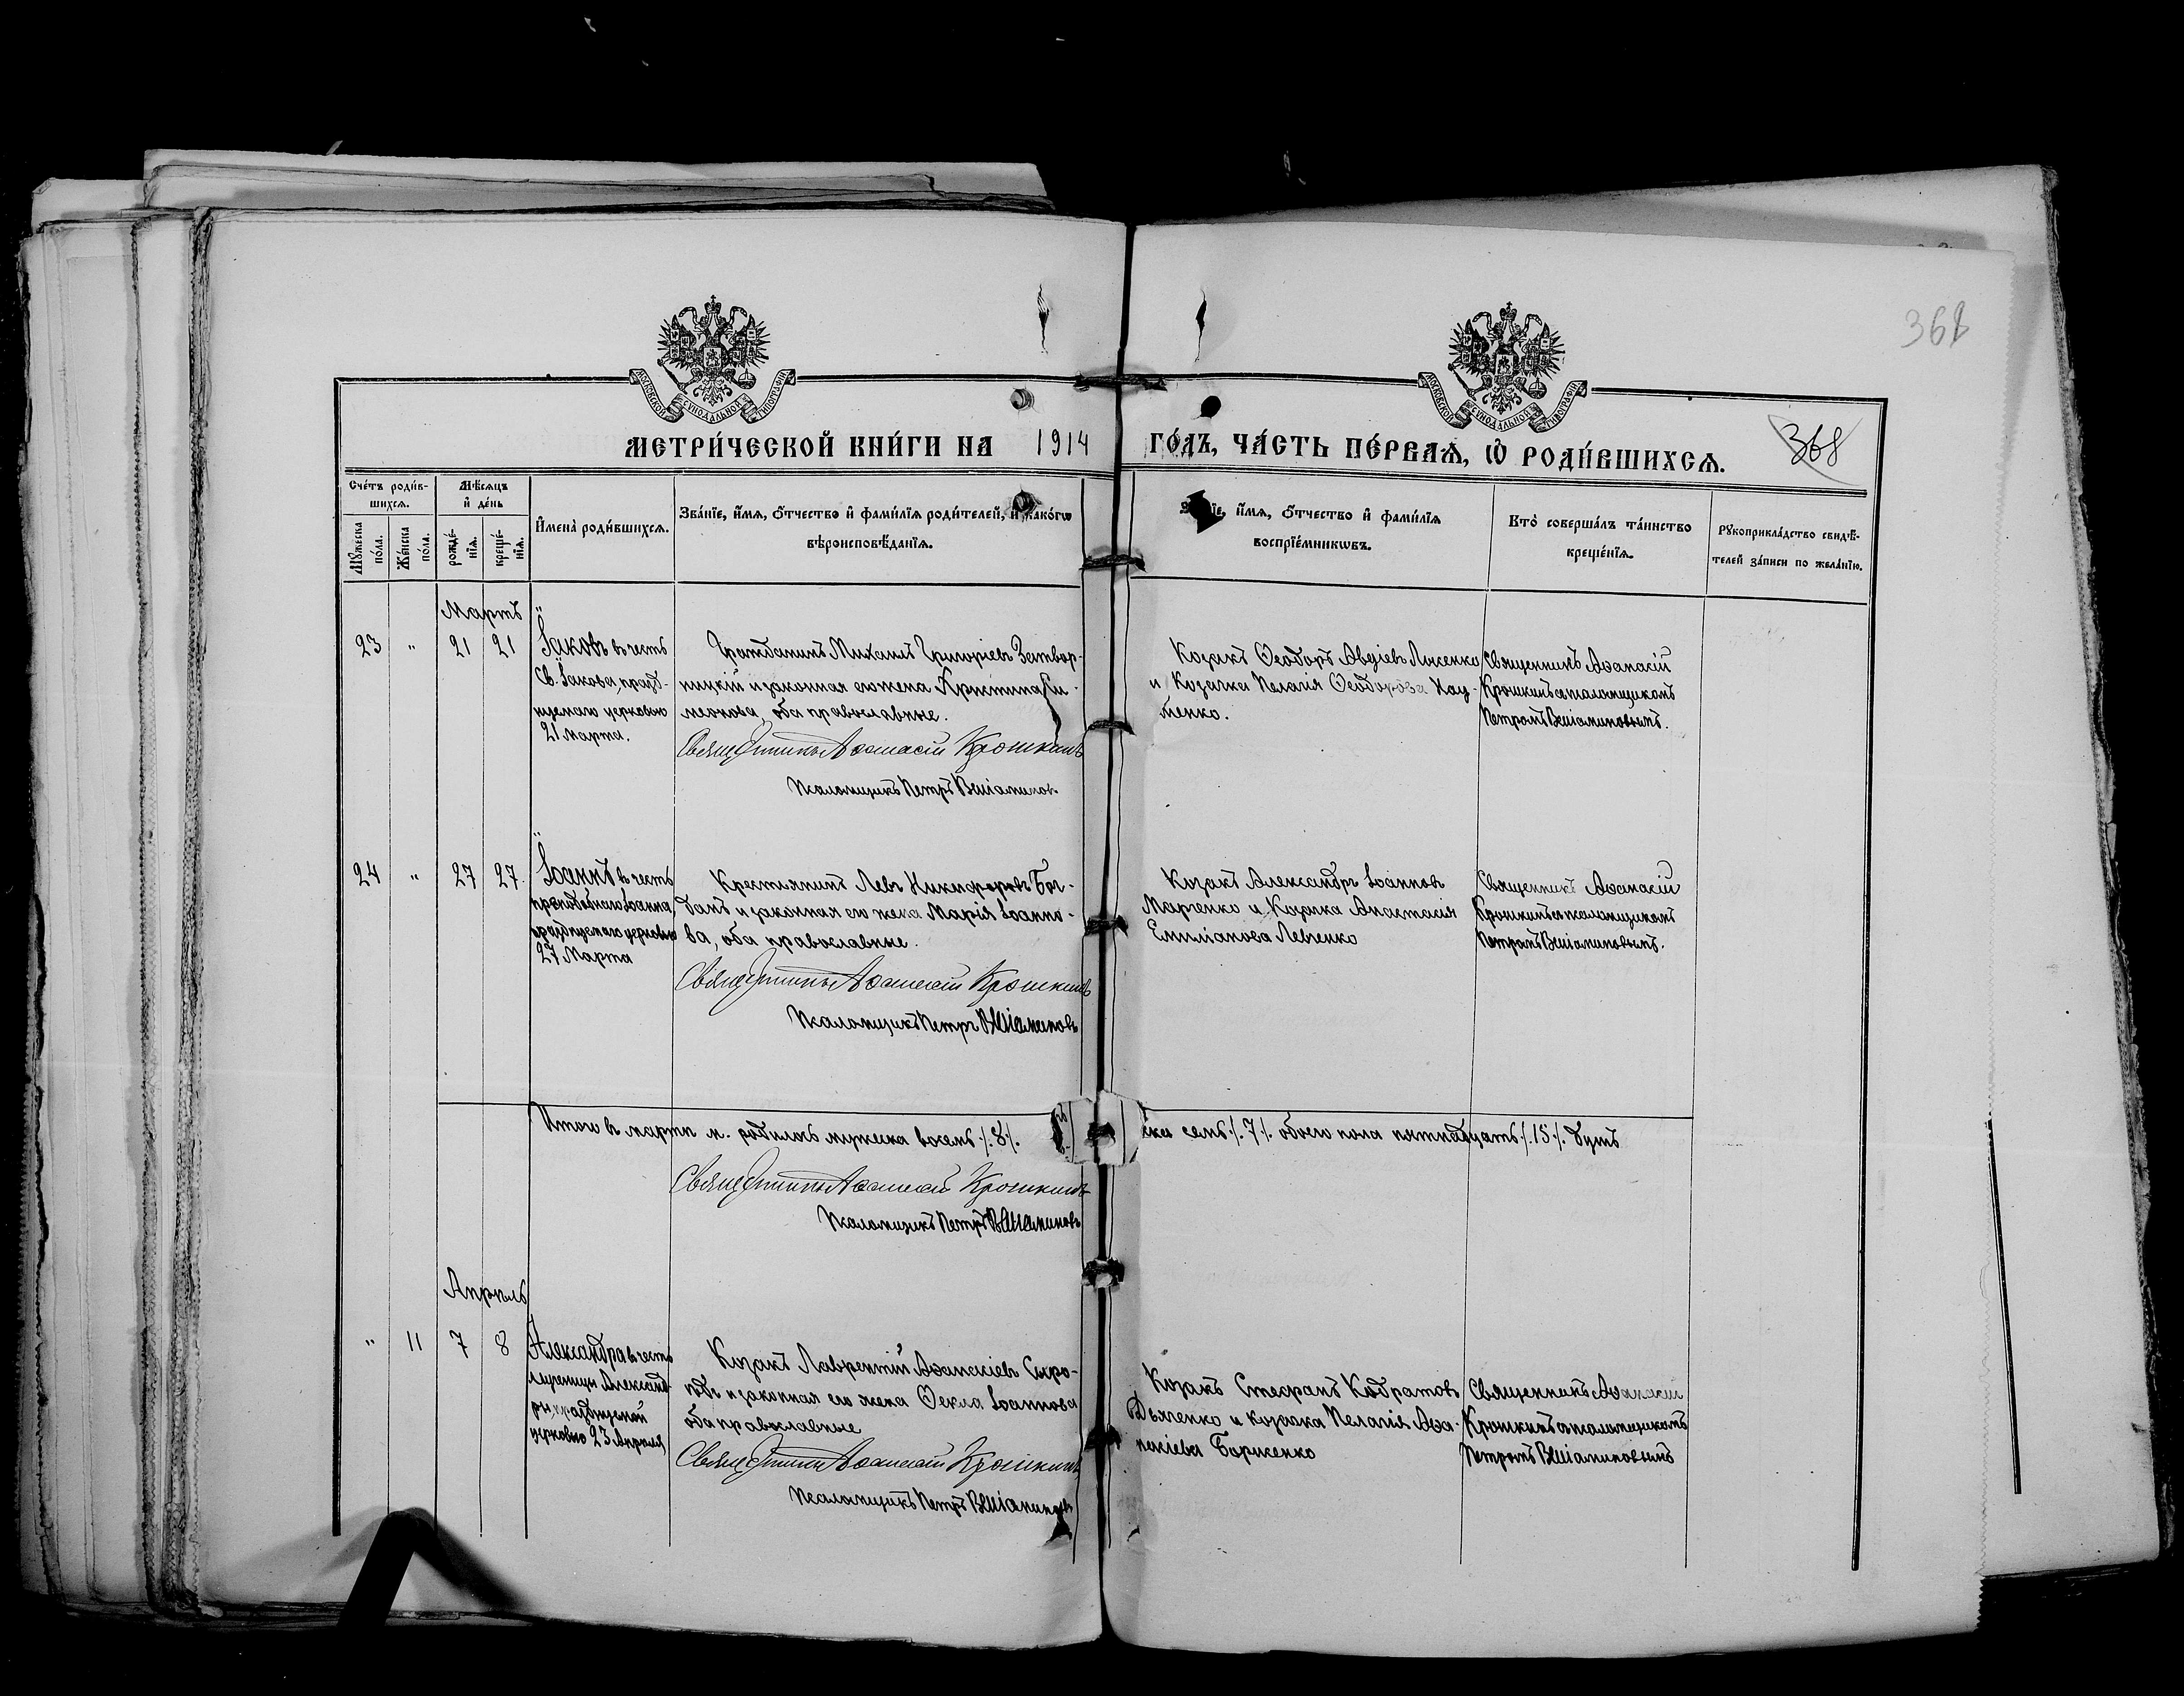 368
МОСКОВСКОЙ СУНОДАЛЬНОЙ ТИПОГРАФІИ
МОСКОВСКОЙ СУНОДАЛЬНОЙ ТИПОГРАФІИ
МЕТРИ́ЧЕСКОЙ КНИ́ГИ НА 1914 ГО́ДЪ, ЧА́СТЬ ПЕ́РВАѦ, Ѡ҆ РОДИ́ВШИХСѦ.
368
Сче́тъ роди́в-
шихсѧ.
Мꙋжеска по́ла.
Же́нска по́ла.
Мѣ́сѧцъ
и҆ де́нь
рожде́-
нїѧ.
креще́-
нїѧ.
И҆мена̀ роди́вшихсѧ.
Зва́нїе, и҆́мѧ, ѻ҆́тчество и҆ фами́лїѧ роди́телей, и҆ како́гѡ
вѣроисповѣ́данїѧ.
и҆́мѧ, ѻ҆́тчество и҆ фами́лїѧ
воспрїе́мникѡвъ.
Кто̀ соверша́лъ та́инство
креще́нїѧ.
Рꙋкоприкла́дство свидѣ́-
телей за́писи по жела́нїю.
Мартъ
23 " 21 21
Іаковъ въ честь
Св. Іакова, празд-
нуемаго церковію
21 марта.
Гражданинъ Михаилъ Григоріевъ Затвор-
ницкій и законная его жена Христина Си-
меонова, оба православные.
Священникъ Аѳанасій Крошкинъ
Псаломщикъ Петръ Веніаминовъ
Козакъ Ѳеодоръ Авдіевъ Лысенко
и Козачка Пелагія Ѳеодорова Нау-
менко.
Священникъ Аѳанасій
Крошкинъ съ псаломщикомъ
Петромъ Веніаминовымъ.
24 " 27 27
Іоаннъ въ честь
преподобнаго Іоанна,
празднуемаго церковію
27 Марта
Крестьянинъ Левъ Никифоровъ Бог-
данъ и законная его жена Марія Іоанно-
ва, оба православные.
Священникъ Аѳанасій Крошкинъ
Псаломщикъ Петръ Веніаминовъ
Козакъ Александръ Іоанновъ
Марченко и Козачка Анастасія
Емиліанова Левченко
Священникъ Аѳанасій
Крошкинъ съ псаломщикомъ
Петромъ Веніаминовымъ.
Итого въ мартѣ м. родилось мужеска восемь /.8/. семь /.7/. обоего пола пятнадцать /.15/. душъ
Священникъ Аѳанасій Крошкинъ
Псаломщикъ Петръ Веніаминовъ
Апрѣль
" 11 7 8
Александра въ честь
мученицы Александ-
ры, празднуемой
церковію 23 Апрѣля
Козакъ Лаврентій Аѳанасіевъ
и законная его жена Ѳекла Іоаннова
оба православные
Священникъ Аѳанасій Крошкинъ
Псаломщикъ Петръ Веніаминовъ
Козакъ Стефанъ Кодратовъ
Дьяченко и козачка Пелагія Аѳа-
насіева Борисенко
Священникъ Аѳанасій
Крошкинъ съ псаломщикомъ
Петромъ Веніаминовымъ